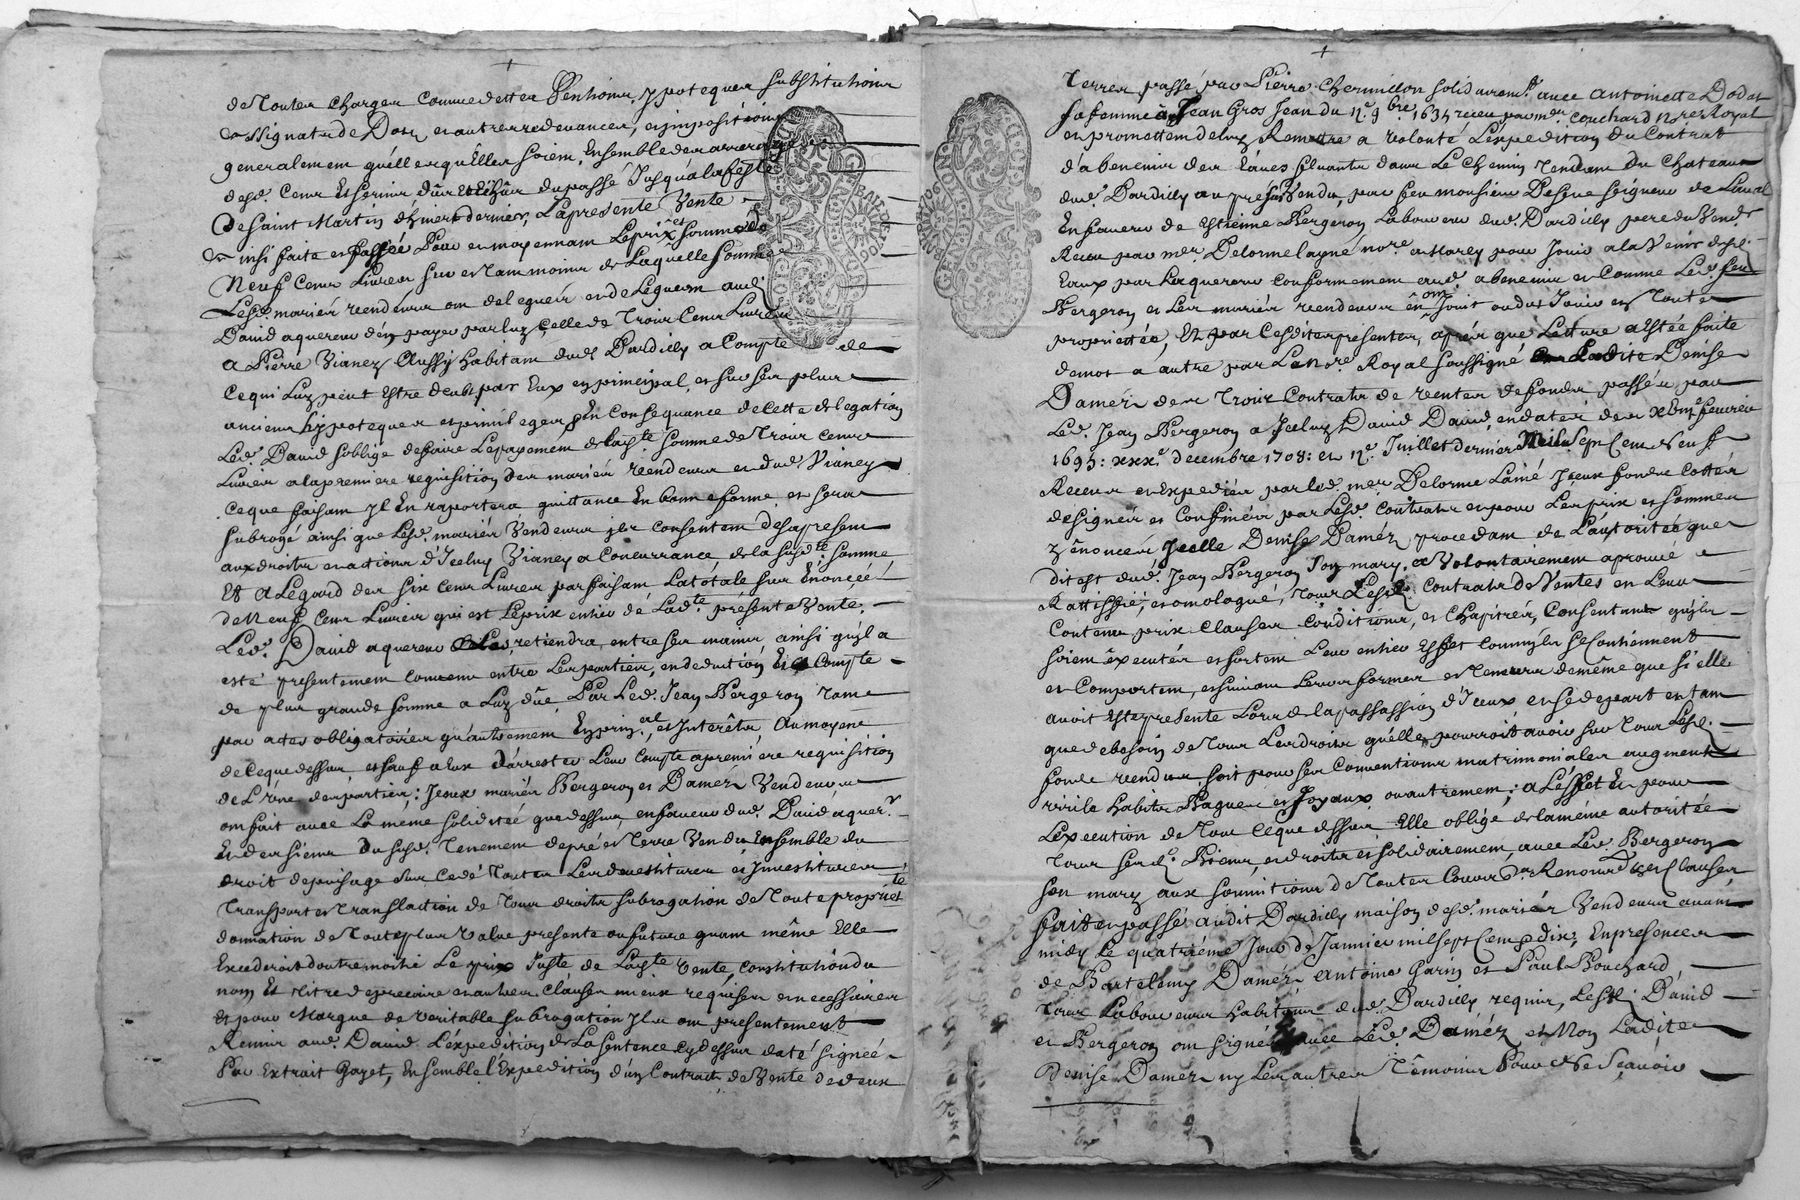 de Toutes Charges Comme dettes Pentions, ypoteques substitutions
assignats de Dots et autres redevances, et impositions
generalement quels et quElles soient, Ensemble des arrerages
desd. Cens Et servis dûs Et Echûs du passé Jusqu'a la feste
De saint Martin d'hiver dernier, La presente Vente
ainsi faite et passée Pour et moyennant Le prix et somme de
Neuf Cens Livres sur et tant moins de Laquelle somme
Lesd. mariés vendeurs ont delegués et deLeguent aud.
David aquereur d'en payer par luy, Celle de Trois Cens Livres
A Pierre Vianey Aussy habitant dud. Dardilly a Compte de
Ce qui Luy peut Estre deub par Eux en principal, et sur ses plus
anciens hypoteques et privileges, En Consequance de Cette delegation
Led. David s'oblige de faire Le payement de lad. somme de Trois Cens
Livres a la premiere requisition des mariés vendeurs et dud. Vianey
Ce que faisant Il En raportera quittance En bonne forme et sera
subrogé ainsi que Lesd. mariés Vendeurs y consentent des apresent
aux droits et actions d'Iceluy Vianey a Concurrance de la susd. somme
Et A Légard des six Cens Livres parfaisant La totale sus Enoncée
de Neuf Cens Livres qui est Le prix entier de Lad.te présente Vente,
Led. David aquereur Les retiendra entre ses mains ainsi qu'il a
esté presentement Convenu entre Les parties, en deduction Et a Compte
de plus grande somme a Luy dûe Par Led. Jean Bergeron Tant
par actes obligatoires qu'autrement En prin.al et Interêts, Au moyent
de Ce que dessus, et sauf a Eux d'arrester Leur Compte a premiere requisition
de L'une des parties; Iceux mariés Bergeron et Daméz Vendeurs
ont fait avec La meme solidité que dessus en faveur dud. David aquer.r
Et des siens du susd. Tenement de pré et Terre Vendu Ensemble du
droit de puisage sus Cedé Toutes Les devestitures et Investitures
Transports et translaction de Tous droits subrogation de Toute proprieté
donnation de Toute plus value presente ou future quant même Elle
Excederoit d'outre moitié Le prix Juste de Lad.te Vente, constitution du
nom Et Titre de precaire et autres Clauses mieux requises et necessaires
Et pour Marque de veritable subrogation Ils ont presentement
Remis aud. David L'éxpedition de La sentence Cy dessus daté signée
Par Extrait Gayet, Ensemble l'Expedition d'un Contract de Vente de deux
Terres passé par Pierre Chermillon solidairem.t avec Antoinette Dodat
sa femme a Jean Gros Jean du 12.e 9.bre 1634 receu par m.re Couchard no.re Royal
et promettent de luy Remettre a volonté L'expedition du Contrat
d'abenevis des Eaues fluantes dans Le chemin Tendant du Chateau
dud. Dardilly au pres Vendu, par feu monsieur Desque Seigneur de Laval
En faveur de Estienne Bergeron Laboureur dud. Dardilly pere du Vend.r
Receu par m.re Delorme layné no.re a Marcy pour Jouir a la Venir desd.
Eaux par L'aquereur conformement aud. abenevis et Comme Led. feu
Bergeron et Les mariés vendeurs en ont Jouit ou dût Jouir en Toute
propriettée, Et par Ces dites presentes, aprés que Lecture a Estée faite
de mot a autre par Le no.re Royal soussigné a Ladite Denise
Daméz des Trois Contrats de Ventes de fonds passés par
Led. Jean Bergeron a Iceluy David David, en datés des xxbiij.e fevrier
1695: xxx.e decembre 1708: et 12.e Juillet dernier Mil Sept Cens Neuf
Receus et Expediés par led. m.re Delorme Lainé Iceux fonds Cottés
designés et Confinés par Lesd. contrats et pour Les prix et sommes
y énoncés Icelle Denise Daméz procedant de L'autoritée que
dit est dud. Jean Bergeron son mary, a Volontairement aprouvé
Rattiffié, et omologué, Tous Lesd. contrats de Ventes en Leur
Contenu prix Clauses conditions, et Chapitres, Consentant qu'ils
soient éxecutés et sortent Leur entier Effet comme ils se Contiennent
et Comportent, et suivant Leurs formes et teneurs de même que si elle
avoit Esté presente Lors de la passassion d'Iceux et se depart en tant
que de besoin de Tous Les droits qu'elle pourroit avoir sur Tous Lesd.
fonds vendus soit pour ses Conventions matrimoniales augment
virile habits Bagues et Joyaux ou autrement; a L'effet Et pour
L'execution de Tout Ceque dessus Elle oblige de la même autoritée
Tous ses d. Biens, et droits et solidairement avec Led. Bergeron
son mary aux soumitions de Toutes Cours Renon.d et Clauses
Fait et passé audit Dardilly maison desd. mariés Vendeurs avant
midy Le quatriéme Jour de Janvier mil sept Cens dix; En presence
de Bartelemy Daméz Antoine Garin et Paul Bouchard,
Tous Laboureurs habitants dud. Dardilly requis, Lesd. David
et Bergeron ont signé avec Led. Daméz et Non Ladite
Denise Daméz ny Les autres Témoins Pour Ne Scavoir